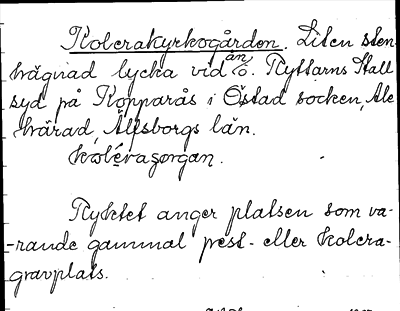 Kolerakyrkogården. Liten sten
hägnad lycka vid än ö. Ryttarns Stall
syd på Kopparås i Östad socken, Ale
härad, Älfsborgs län.
koléragorgan.
Ryktet anger platsen som va-
-rande gammal pest- eller kolera-
gravplats.